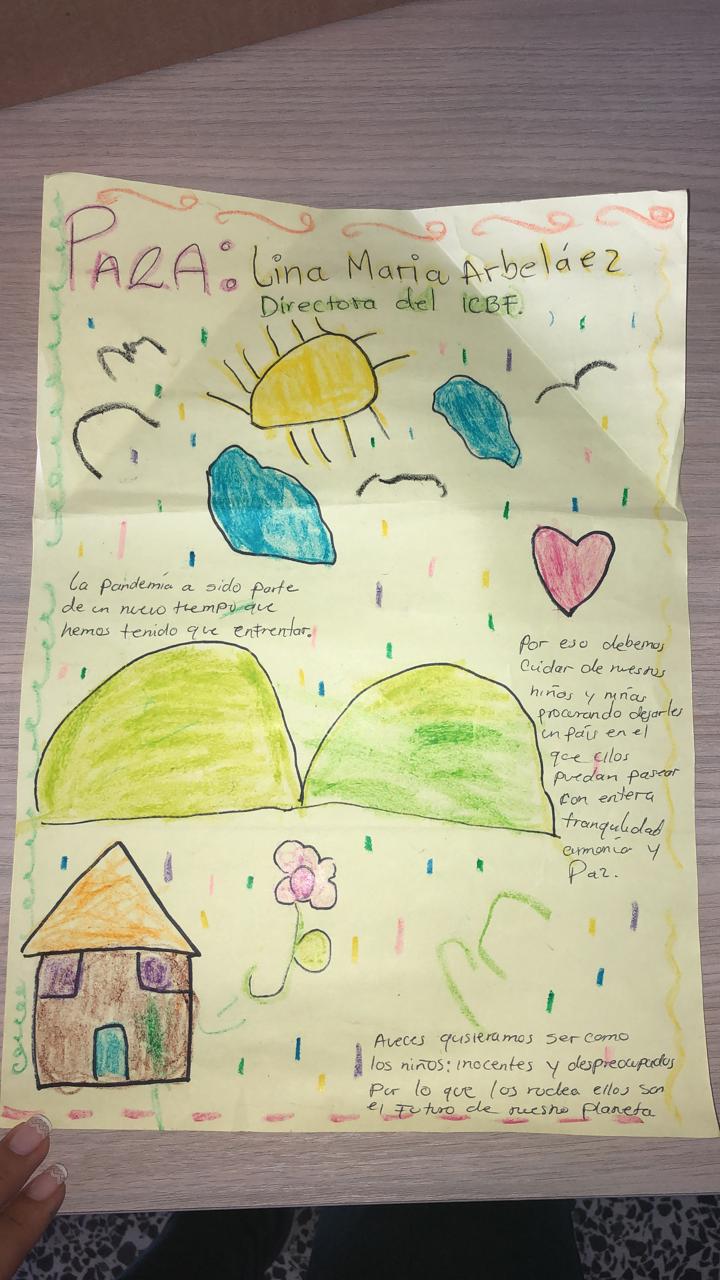 PARA: Lina Maria Arbeláez
Directora del ICBF.
La pandemia a sido parte
de un nuevo tiempo que
hemos tenido que enfrentar.
Por eso debemos
Cuidar de nuestros
niños y niñas
procurando dejarles
un país en el
que ellos
puedan pasear
con entera
tranquilidad
armonía y
Paz.
Aveces quisieramos ser como
los niños: inocentes y despreocupados
Por lo que los rodea ellos son
el Futuro de nuestro planeta